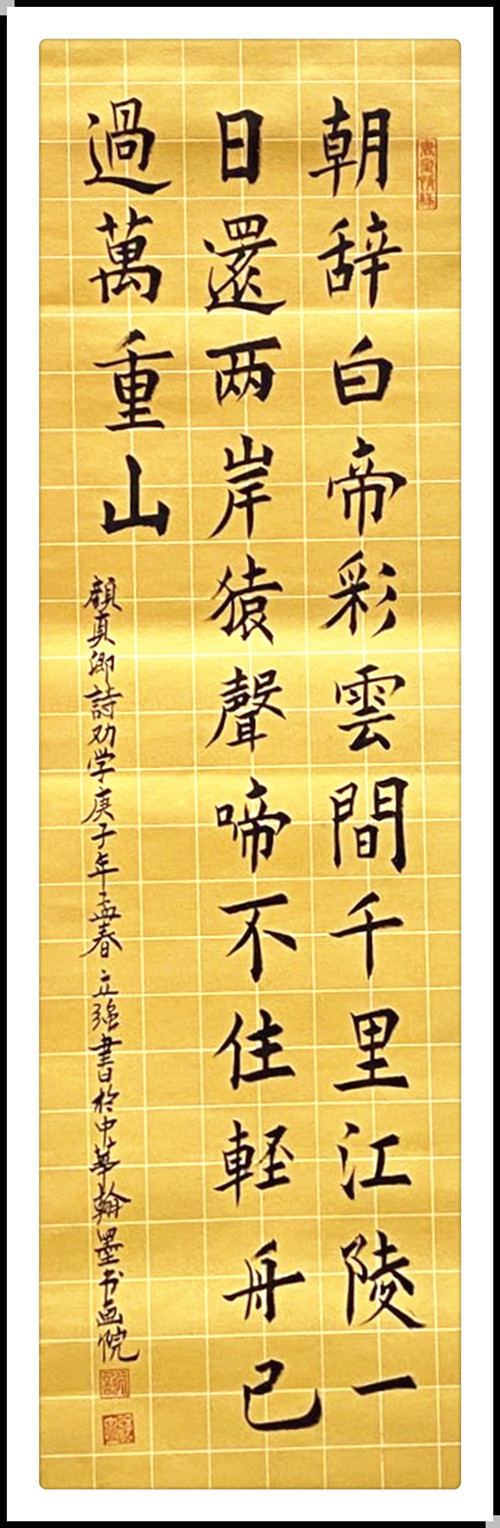 朝辞白帝彩雲間千里江陵一
日還两岸猿聲啼不住軽舟已
過萬重山
顔真卿詩劝学庚子年孟春立强書於中華翰墨书画院